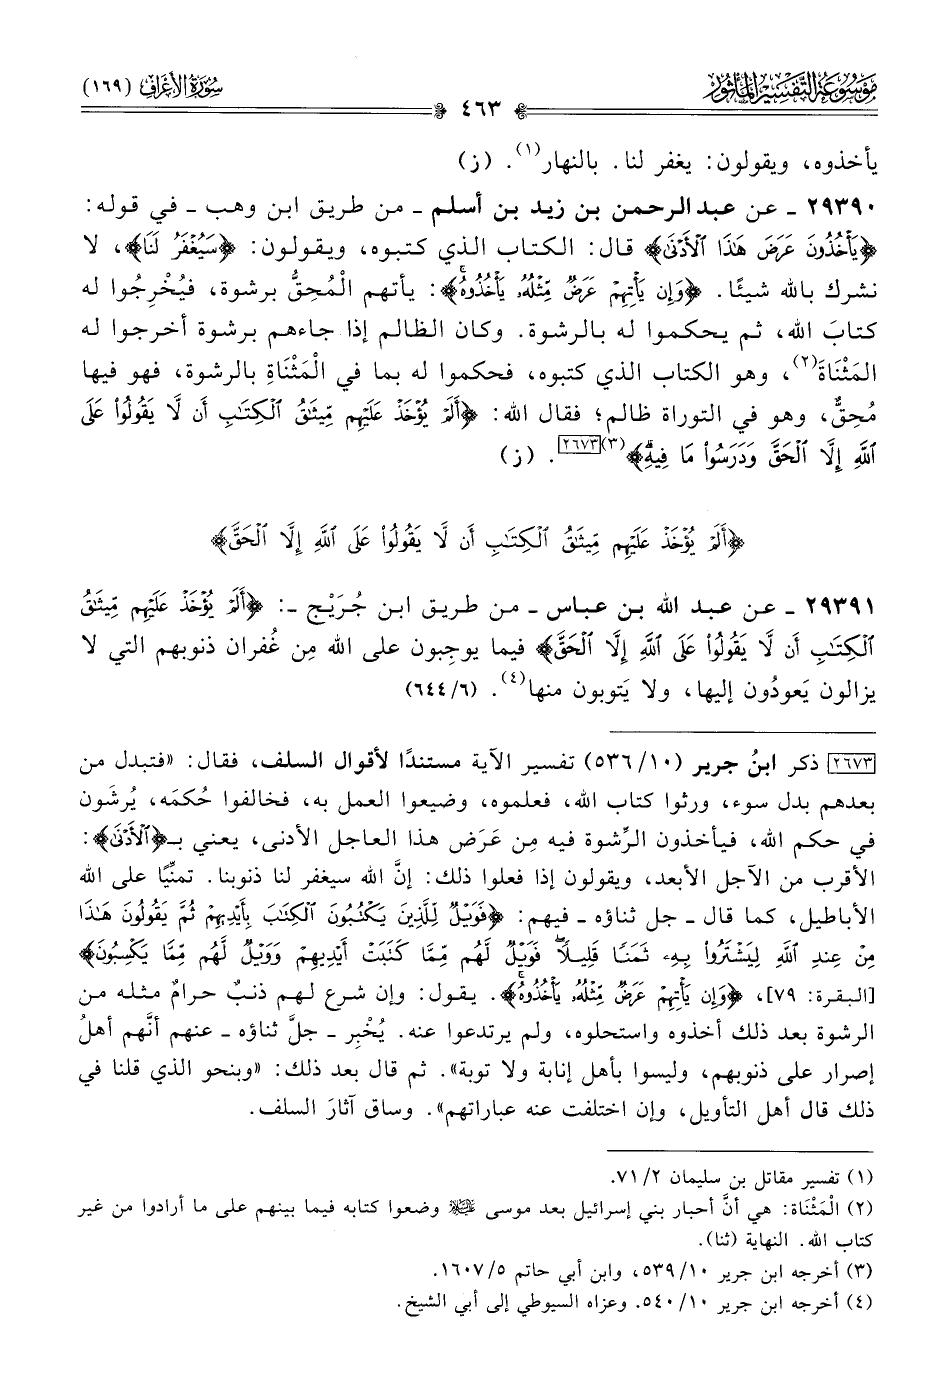 مَوْسُوعَةُ التَّفْسِيرِ المَأْثُور
سُورَةُ الأَعْرَافِ (١٦٩)
٤٦٣
يأخذوه، ويقولون: يغفر لنا. بالنهار(١). (ز)
٢٩٣٩٠ ـ عن عبد الرحمن بن زيد بن أسلم ـ من طريق ابن وهب ـ في قوله:
﴿يَأْخُذُونَ عَرَضَ هَٰذَا ٱلْأَدْنَىٰ﴾ قال: الكتاب الذي كتبوه، ويقولون: ﴿سَيُغْفَرُ لَنَا﴾، لا
نشرك بالله شيئًا. ﴿وَإِن يَأْتِهِمْ عَرَضٌ مِّثْلُهُۥ يَأْخُذُوهُۚ﴾: يأتهم الْمُحِقُّ برشوة، فيُخْرِجُوا له
كتابَ الله، ثم يحكموا له بالرشوة. وكان الظالم إذا جاءهم برشوة أخرجوا له
المَثْنَاةَ(٢)، وهو الكتاب الذي كتبوه، فحكموا له بما في الْمَثْنَاةِ بالرشوة، فهو فيها
مُحِقٌّ، وهو في التوراة ظالم؛ فقال الله: ﴿أَلَمْ يُؤْخَذْ عَلَيْهِم مِّيثَٰقُ ٱلْكِتَٰبِ أَن لَّا يَقُولُوا۟ عَلَى
ٱللَّهِ إِلَّا ٱلْحَقَّ وَدَرَسُوا۟ مَا فِيهِۗ﴾(٣)[٢٦٧٣]. (ز)
﴿أَلَمْ يُؤْخَذْ عَلَيْهِم مِّيثَٰقُ ٱلْكِتَٰبِ أَن لَّا يَقُولُوا۟ عَلَى ٱللَّهِ إِلَّا ٱلْحَقَّ﴾
٢٩٣٩١ ـ عن عبد الله بن عباس ـ من طريق ابن جُرَيْج ـ: ﴿أَلَمْ يُؤْخَذْ عَلَيْهِم مِّيثَٰقُ
ٱلْكِتَٰبِ أَن لَّا يَقُولُوا۟ عَلَى ٱللَّهِ إِلَّا ٱلْحَقَّ﴾ فيما يوجِبون على الله مِن غُفران ذنوبهم التي لا
يزالون يَعودُون إليها، ولا يَتوبون منها(٤). (٦/٦٤٤)
[٢٦٧٣] ذكر ابنُ جرير (١٠/٥٣٦) تفسير الآية مستندًا لأقوال السلف، فقال: «فتبدل من
بعدهم بدل سوء، ورثوا كتاب الله، فعلموه، وضيعوا العمل به، فخالفوا حُكمَه، يُرشَون
في حكم الله، فيأخذون الرِّشوة فيه مِن عَرَض هذا العاجل الأدنى، يعني بـ﴿ٱلْأَدْنَىٰ﴾:
الأقرب من الآجل الأبعد، ويقولون إذا فعلوا ذلك: إنَّ الله سيغفر لنا ذنوبنا. تمنِّيًا على الله
الأباطيل، كما قال ـ جل ثناؤه ـ فيهم: ﴿فَوَيْلٌ لِّلَّذِينَ يَكْتُبُونَ ٱلْكِتَٰبَ بِأَيْدِيهِمْ ثُمَّ يَقُولُونَ هَٰذَا
مِنْ عِندِ ٱللَّهِ لِيَشْتَرُوا۟ بِهِۦ ثَمَنًا قَلِيلًاۖ فَوَيْلٌ لَّهُم مِّمَّا كَتَبَتْ أَيْدِيهِمْ وَوَيْلٌ لَّهُم مِّمَّا يَكْسِبُونَ﴾
[البقرة: ٧٩]، ﴿وَإِن يَأْتِهِمْ عَرَضٌ مِّثْلُهُۥ يَأْخُذُوهُۚ﴾. يقول: وإن شرع لهم ذنبٌ حرامٌ مثله من
الرشوة بعد ذلك أخذوه واستحلوه، ولم يرتدعوا عنه. يُخْبِر ـ جلَّ ثناؤه ـ عنهم أنَّهم أهلُ
إصرار على ذنوبهم، وليسوا بأهل إنابة ولا توبة». ثم قال بعد ذلك: «وبنحو الذي قلنا في
ذلك قال أهل التأويل، وإن اختلفت عنه عباراتهم». وساق آثارَ السلف.
(١) تفسير مقاتل بن سليمان ٢/٧١.
(٢) الْمَثْنَاة: هي أنَّ أحبار بني إسرائيل بعد موسى ﷺ وضعوا كتابه فيما بينهم على ما أرادوا من غير
كتاب الله. النهاية (ثنا).
(٣) أخرجه ابن جرير ١٠/٥٣٩، وابن أبي حاتم ٥/١٦٠٧.
(٤) أخرجه ابن جرير ١٠/٥٤٠. وعزاه السيوطي إلى أبي الشيخ.